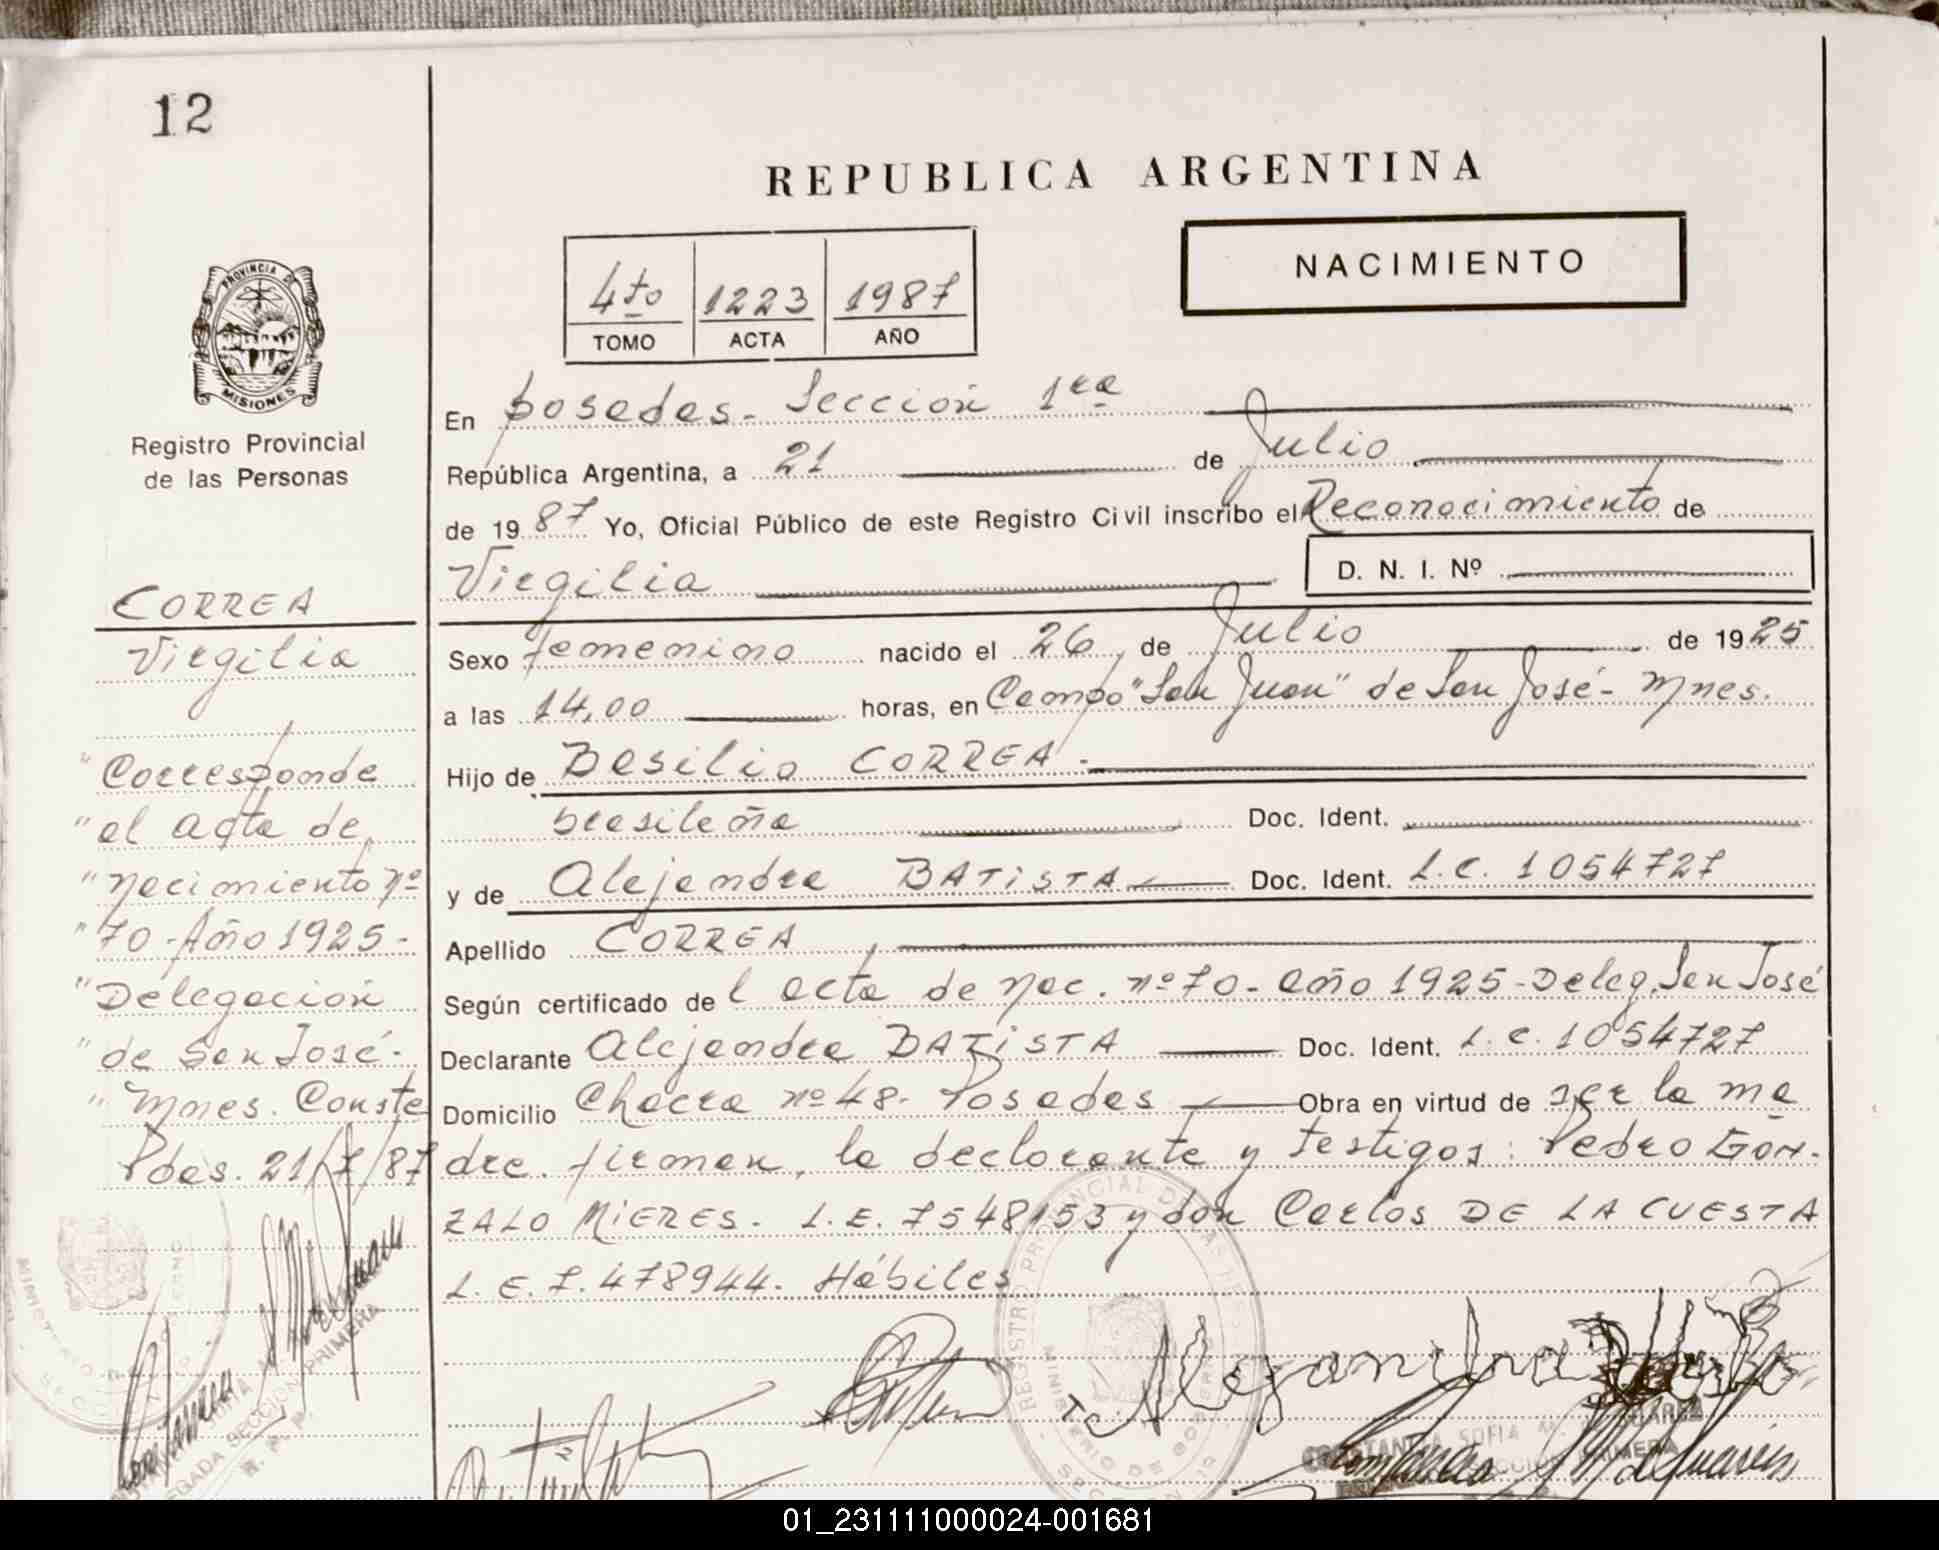 12
REPUBLICA ARGENTINA
NACIMIENTO
4to 1223 1987
TOMO ACTA AÑO
PROVINCIA DE
MISIONES
Registro Provincial
de las Personas
En Posadas - Sección 1ra
República Argentina, a 21 de Julio
de 1987 Yo, Oficial Público de este Registro Civil inscribo el Reconocimiento de
Virgilia D. N. I. Nº
CORREA
Virgilia
Sexo femenino nacido el 26 de Julio de 1925
a las 14,00 horas, en Campo "San Juan" de San José - Mnes.
Hijo de Basilio CORREA.
brasileña Doc. Ident.
y de Alejandra BATISTA Doc. Ident. L.C. 1054727
Apellido CORREA
Según certificado del acta de nac. nº 70 - año 1925 - Deleg. San José
Declarante Alejandra BATISTA Doc. Ident. L.C. 1054727
Domicilio Chacra nº 48. Posadas Obra en virtud de ser la ma
dre. firman, la declarante y testigos: Pedro GON-
ZALO MIERES. L.E. 7548153 y don Carlos DE LA CUESTA
L.E. 7.478944. Hábiles
"Corresponde
"al acta de
"nacimiento nº
"70 - Año 1925 -
"Delegación
"de San José -
"Mnes. Conste
Pdas. 21/7/87
REGISTRO PROVINCIAL DE LAS
Alejandra
CONSTANCIA SOFIA
SECCION PRIMERA
01_231111000024-001681